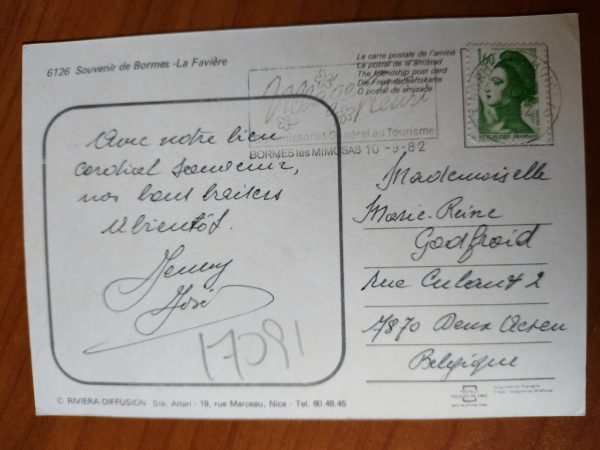 6126 Souvenir de Bormes - La Favière
La carte postale de l'amitié
La postal de la amistad
The friendship post card
Die Freundschaftskarte
O postal de amizade
1,60
REPUBLIQUE FRANÇAISE
Général au Tourisme
BORMES les MIMOSAS 10-9-82
Avec notre bien
cordial souvenir,
nos bons baisers
A bientôt.
José
17091
Mademoiselle
Marie-Reine
Godfroid
rue Culant 2
7870 Deux Acren
Belgique
© RIVIERA-DIFFUSION - Ste. Altari - 19, rue Marceau, Nice - Tel. 80.48.45